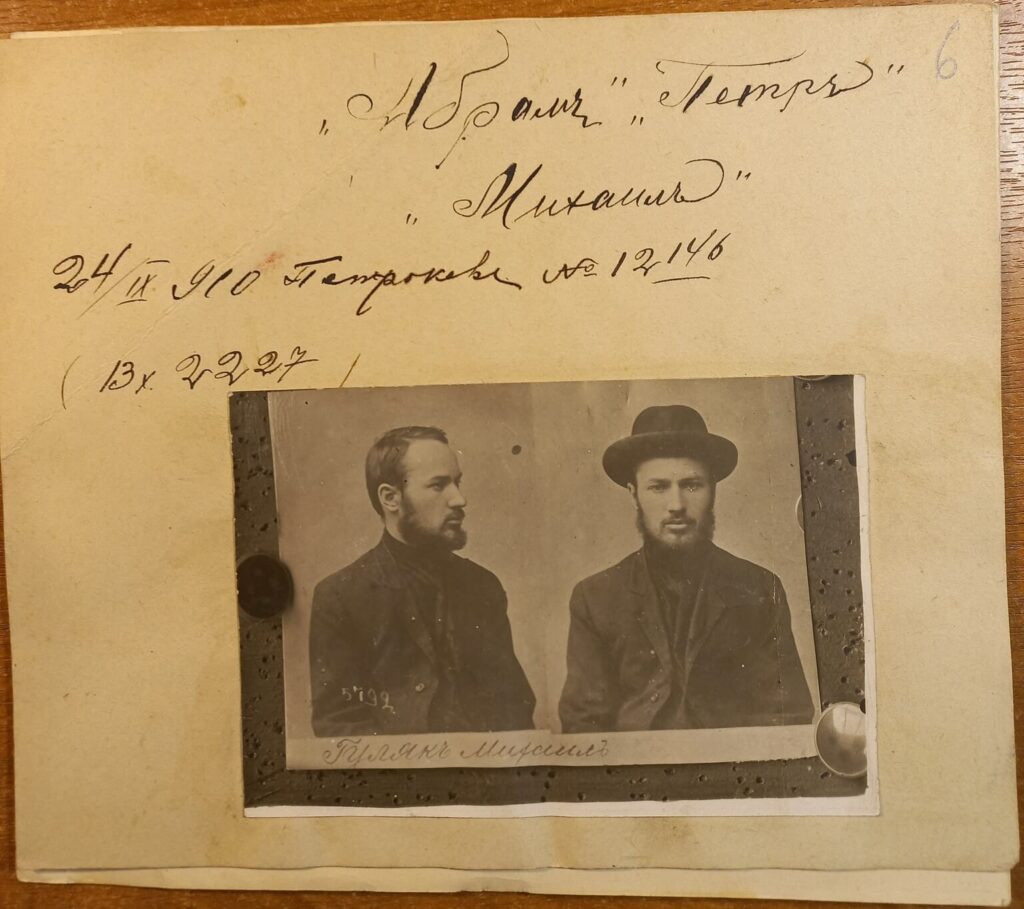 6
„Абрамъ" „Петръ"
„Михаилъ"
24/IX 910 Петроковъ № 12146
(13х. 2227)
5792
Гулякъ Михаилъ